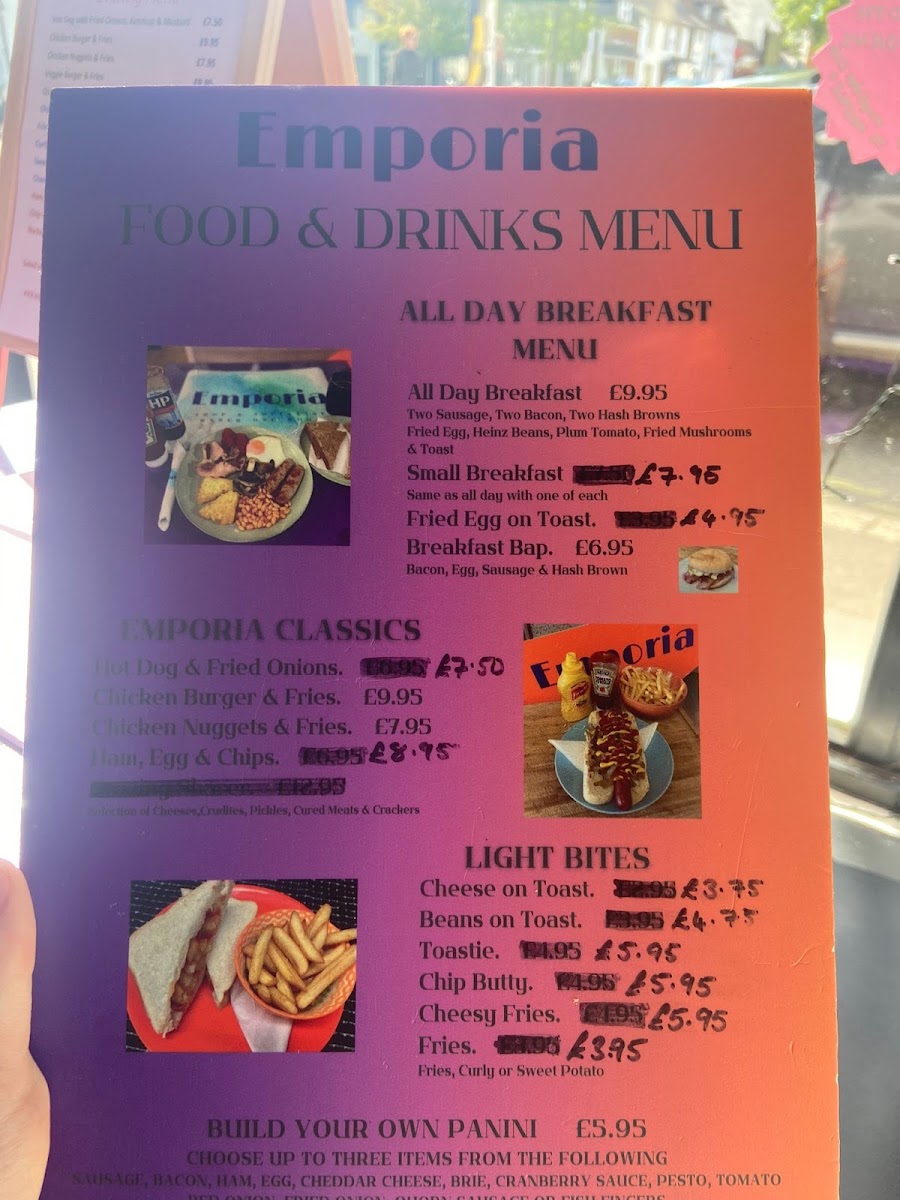 Hot Dog with Fried Onions, Ketchup & Mustard £7.50
Chicken Burger & Fries £9.95
Chicken Nuggets & Fries £7.95
Veggie Burger & Fries
Emporia
FOOD & DRINKS MENU
ALL DAY BREAKFAST
MENU
All Day Breakfast £9.95
Two Sausage, Two Bacon, Two Hash Browns
Fried Egg, Heinz Beans, Plum Tomato, Fried Mushrooms
& Toast
Small Breakfast £7.95
Same as all day with one of each
Fried Egg on Toast. £3.95 £4.95
Breakfast Bap. £6.95
Bacon, Egg, Sausage & Hash Brown
HP
Emporia
EMPORIA CLASSICS
Hot Dog & Fried Onions. £6.95 £7.50
Chicken Burger & Fries. £9.95
Chicken Nuggets & Fries. £7.95
Ham, Egg & Chips. £6.95 £8.95
£12.95
Selection of Cheeses,Crudites, Pickles, Cured Meats & Crackers
Emporia
LIGHT BITES
Cheese on Toast. £2.95 £3.75
Beans on Toast. £3.95 £4.75
Toastie. £4.95 £5.95
Chip Butty. £4.95 £5.95
Cheesy Fries. £4.95 £5.95
Fries. £3.95
Fries, Curly or Sweet Potato
BUILD YOUR OWN PANINI £5.95
CHOOSE UP TO THREE ITEMS FROM THE FOLLOWING
SAUSAGE, BACON, HAM, EGG, CHEDDAR CHEESE, BRIE, CRANBERRY SAUCE, PESTO, TOMATO
RED ONION, FRIED ONION, QUORN SAUSAGE OR FISH FINGERS